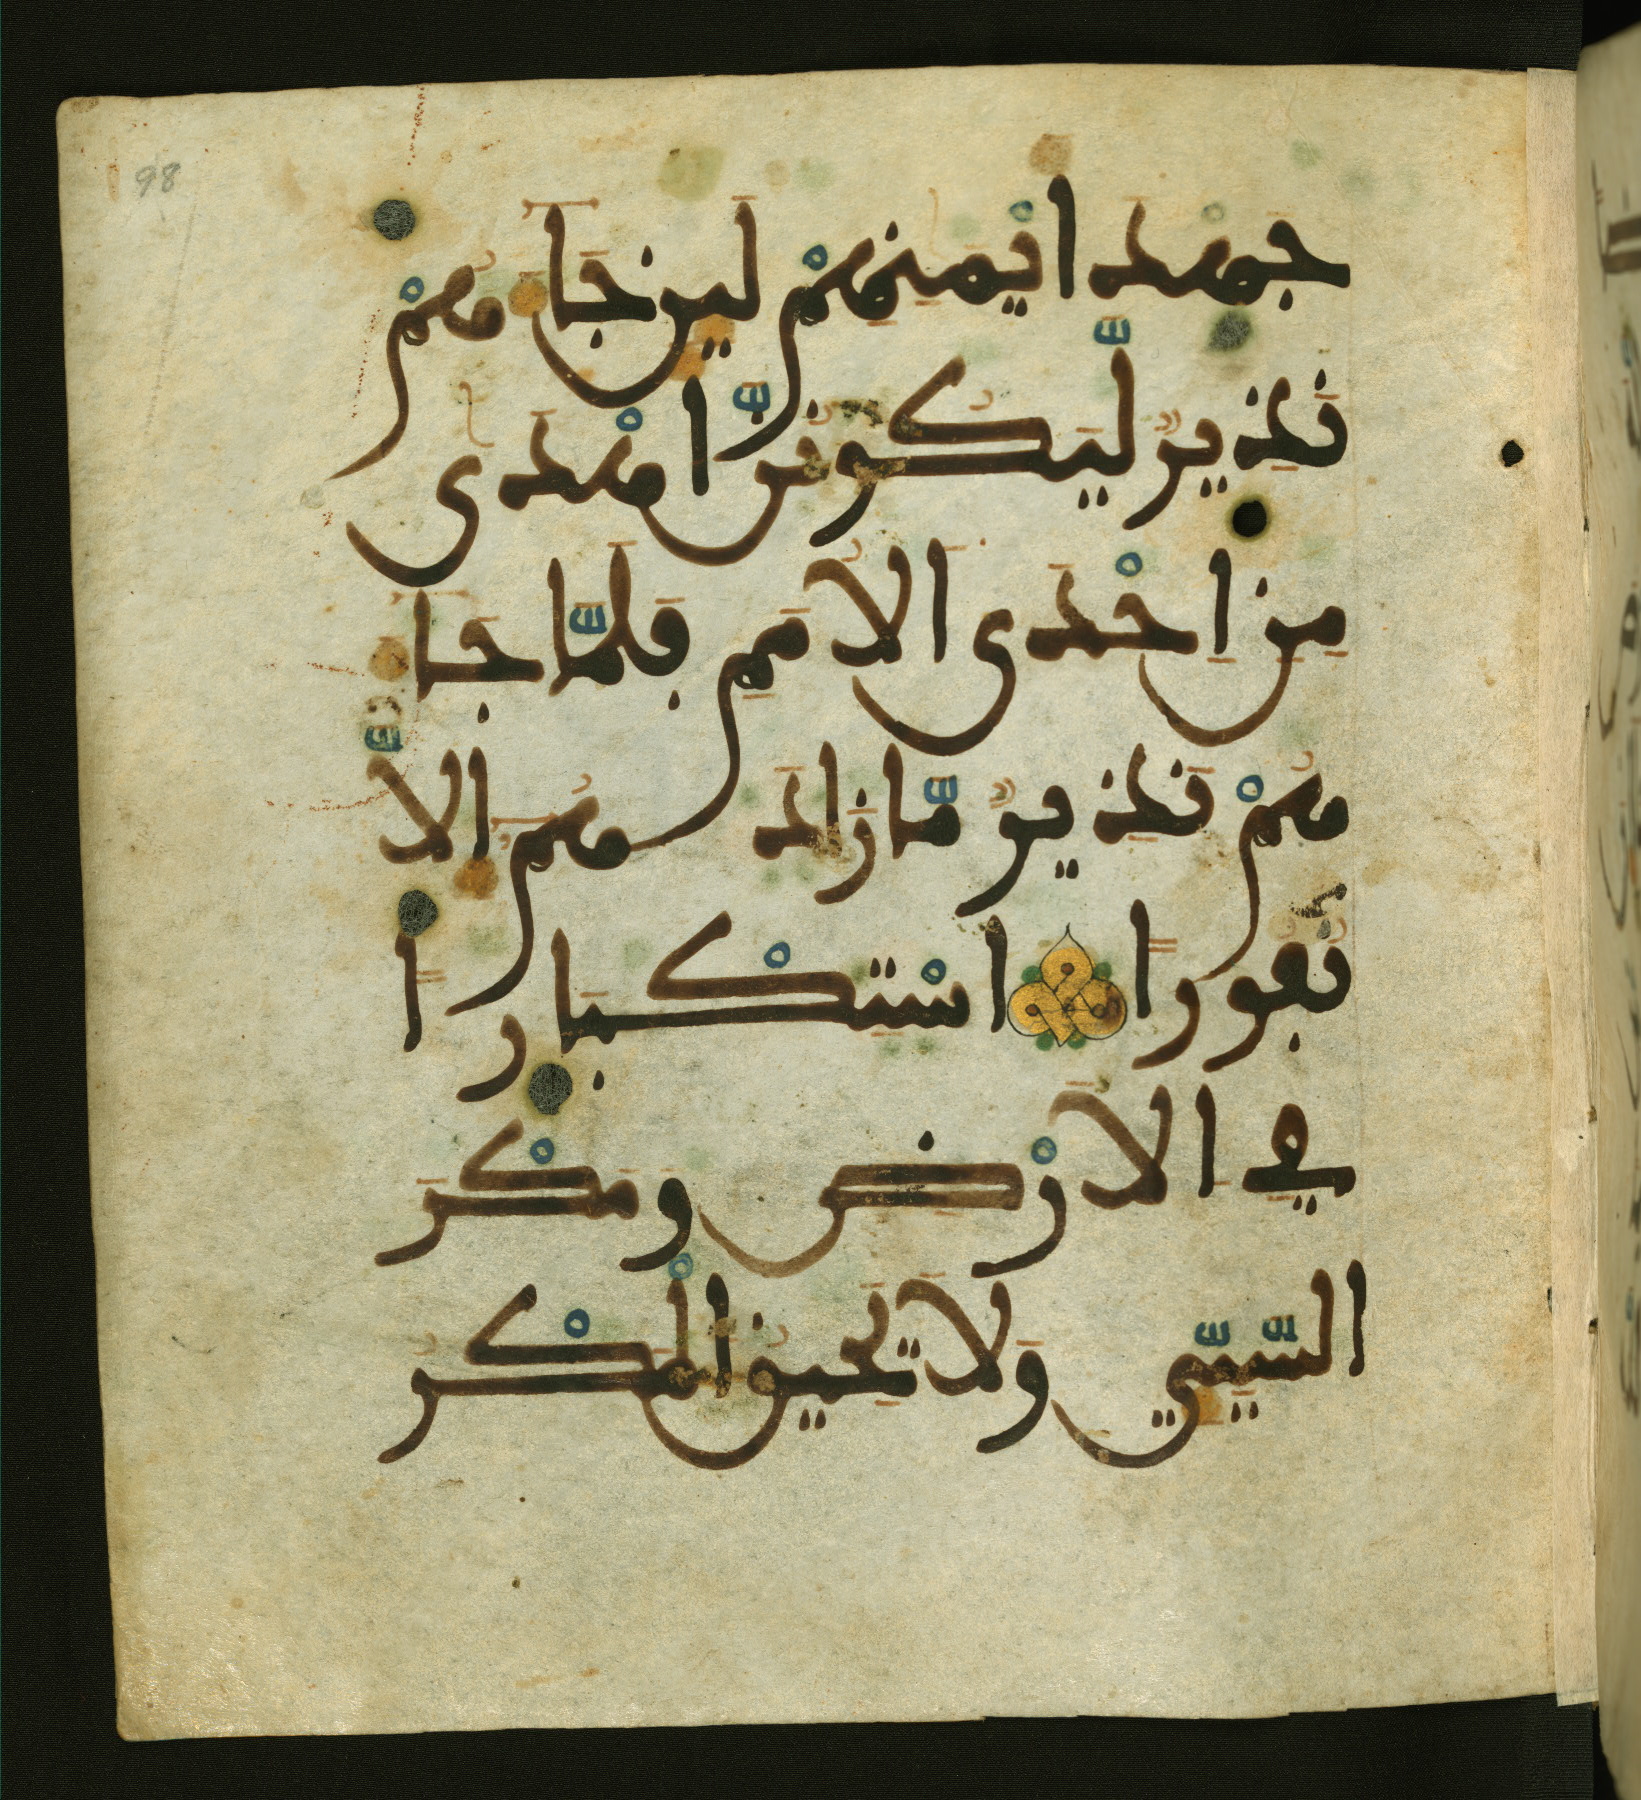 98
جَهْدَ أَيْمَٰنِهِمْ لَئِن جَآءَهُمْ
نَذِيرٌ لَّيَكُونُنَّ أَهْدَىٰ
مِنْ إِحْدَى الْأُمَمِ ڢَلَمَّا جَآءَ
هُمْ نَذِيرٌ مَّا زَادَهُمُۥٓ إِلَّا
نُڢُورًا اسْتِكْبَارًا
ڢِي الْأَرْضِ وَمَكْرَ
السَّيِّيِٕ وَلَا يَحِيقُ الْمَكْرُ